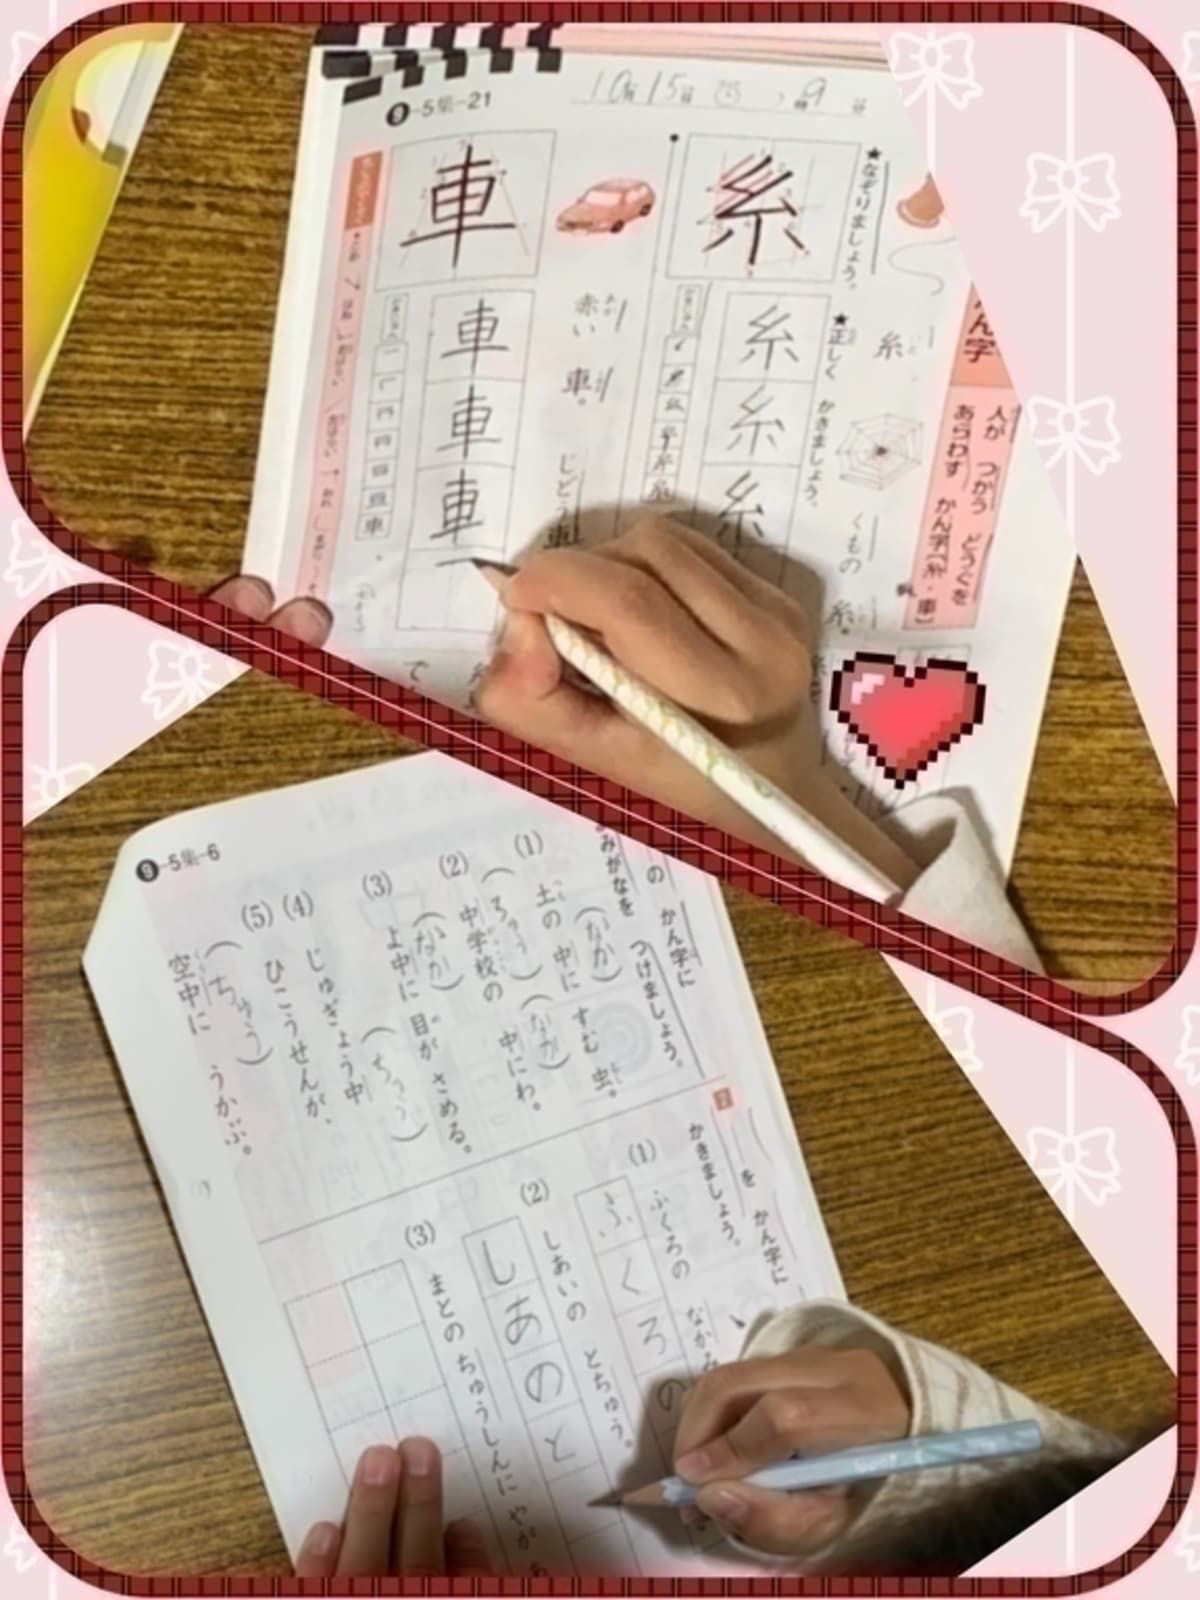 ❾-5集-21
10月15日
9分
かん字
人が つかう どうぐを
あらわす かん字(糸・車)
★なぞりましょう。
糸
くもの 糸。
★正しく かきましょう。
糸
糸
糸
糸
赤い 車。
じどう車
車
車
車
車
❾-5集-6
の かん字に
みがなを つけましょう。
(1)
土の 中に すむ 虫。
(なか)
(2)
中学校の 中にわ。
(ちゅう)
(なか)
(3)
よ中に 目が さめる。
(なか)
(4)
じゅぎょう中
(ちゅう)
(5)
ひこうせんが、
空中に うかぶ。
(ちゅう)
2
を かん字に
かきましょう。
(1)
ふくろの なか
ふくろの
(2)
しあいの とちゅう。
しあのと
(3)
まとの ちゅうしんに や